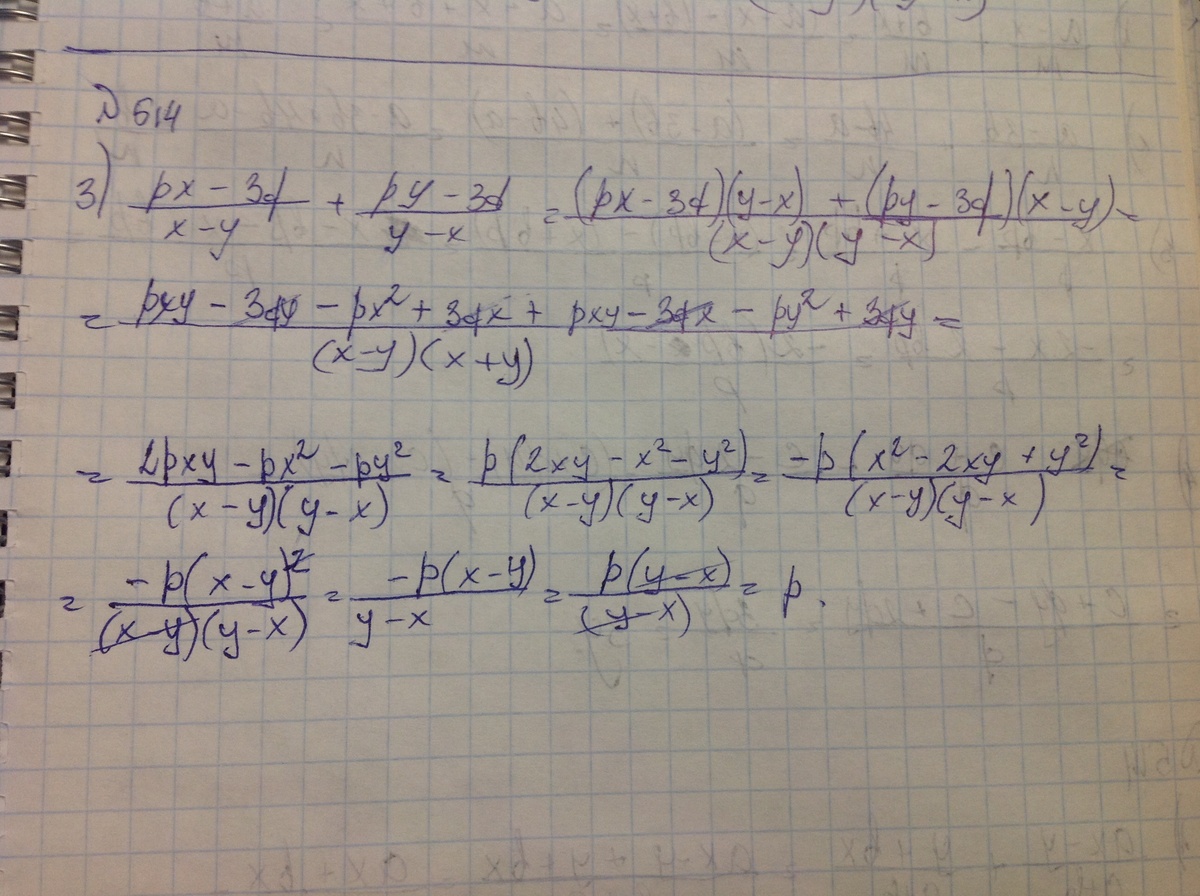 № 614
3) (px - 3d)/(x - y) + (py - 3d)/(y - x) = ((px - 3d)(y - x) + (py - 3d)(x - y))/((x - y)(y - x)) =
= (pxy - 3dy - px² + 3dx + pxy - 3dx - py² + 3dy)/((x - y)(x + y)) =
= (2pxy - px² - py²)/((x - y)(y - x)) = p(2xy - x² - y²)/((x - y)(y - x)) = -p(x² - 2xy + y²)/((x - y)(y - x)) =
= -p(x - y)²/((x - y)(y - x)) = -p(x - y)/(y - x) = p(y - x)/(y - x) = p.